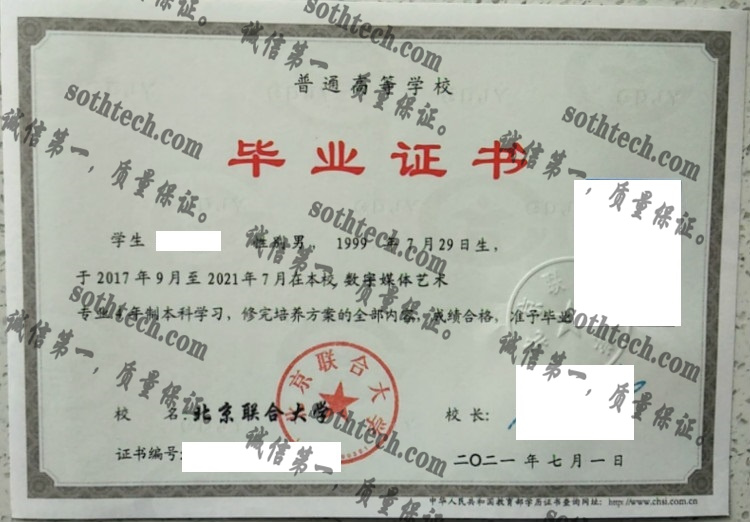 普通高等学校
毕业证书
学生 性别男，1999 年7月29日生，
于2017年9月至2021年7月在本校 数字媒体艺术
专业4年制本科学习，修完培养方案的全部内容，成绩合格，准予毕业
北京联合大学
校 名：北京联合大学
校 长：
证书编号：
二〇二一年七月一日
中华人民共和国教育部学历证书查询网址：http://www.chsi.com.cn
sothtech.com
诚信第一，质量保证。
sothtech.com
诚信第一，质量保证。
sothtech.com
诚信第一，质量保证。
sothtech.com
诚信第一，质量保证。
sothtech.com
诚信第一，质量保证。
sothtech.com
诚信第一，质量保证。
sothtech.com
诚信第一，质量保证。
sothtech.com
诚信第一，质量保证。